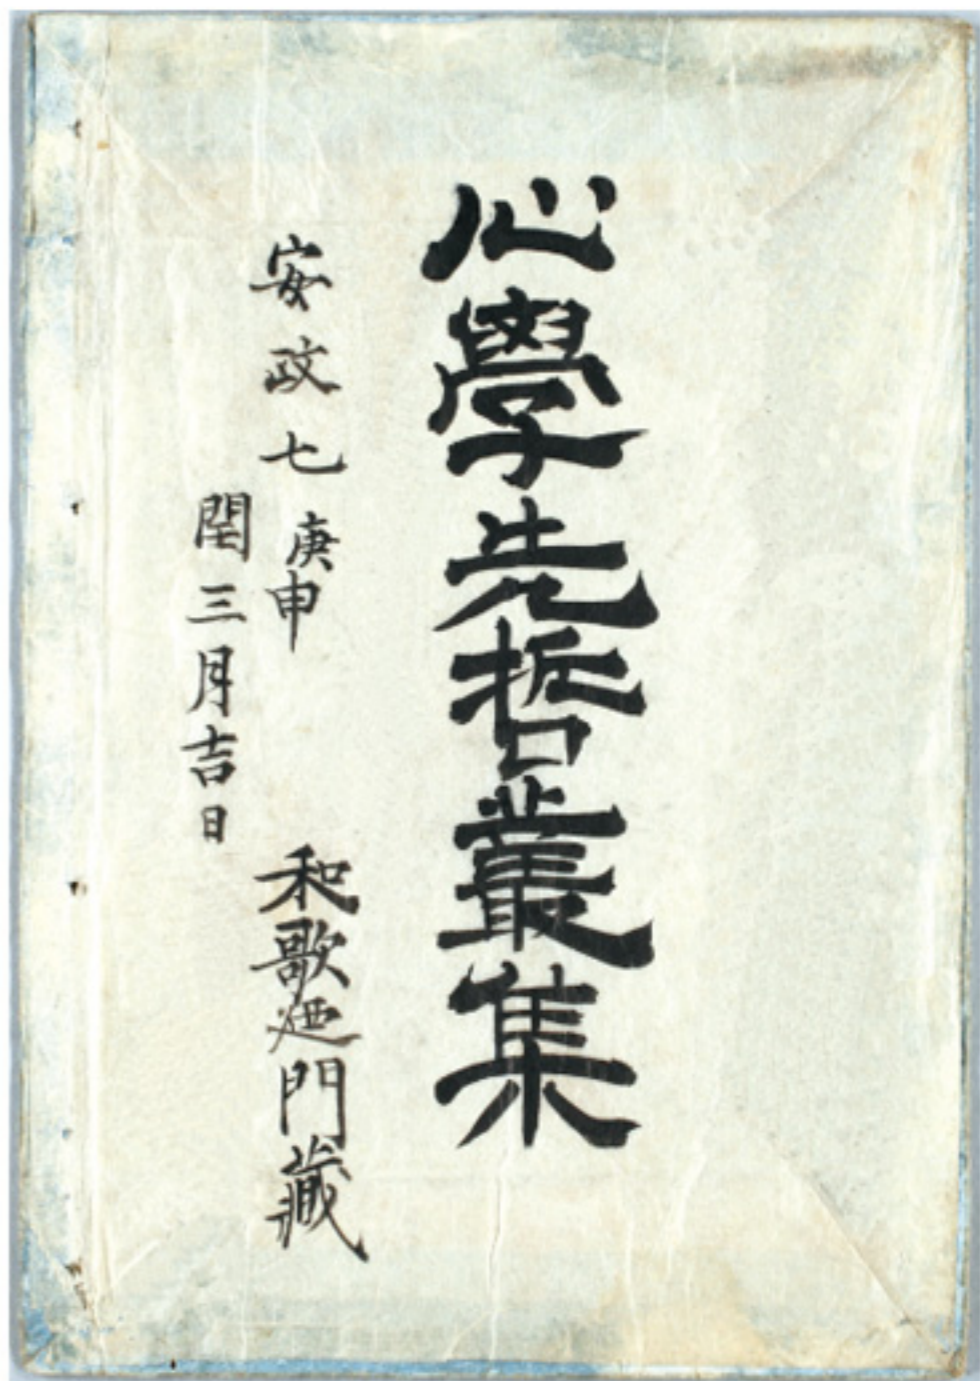 心學先哲叢集
安政七庚申
閏三月吉日
和歌廼門蔵